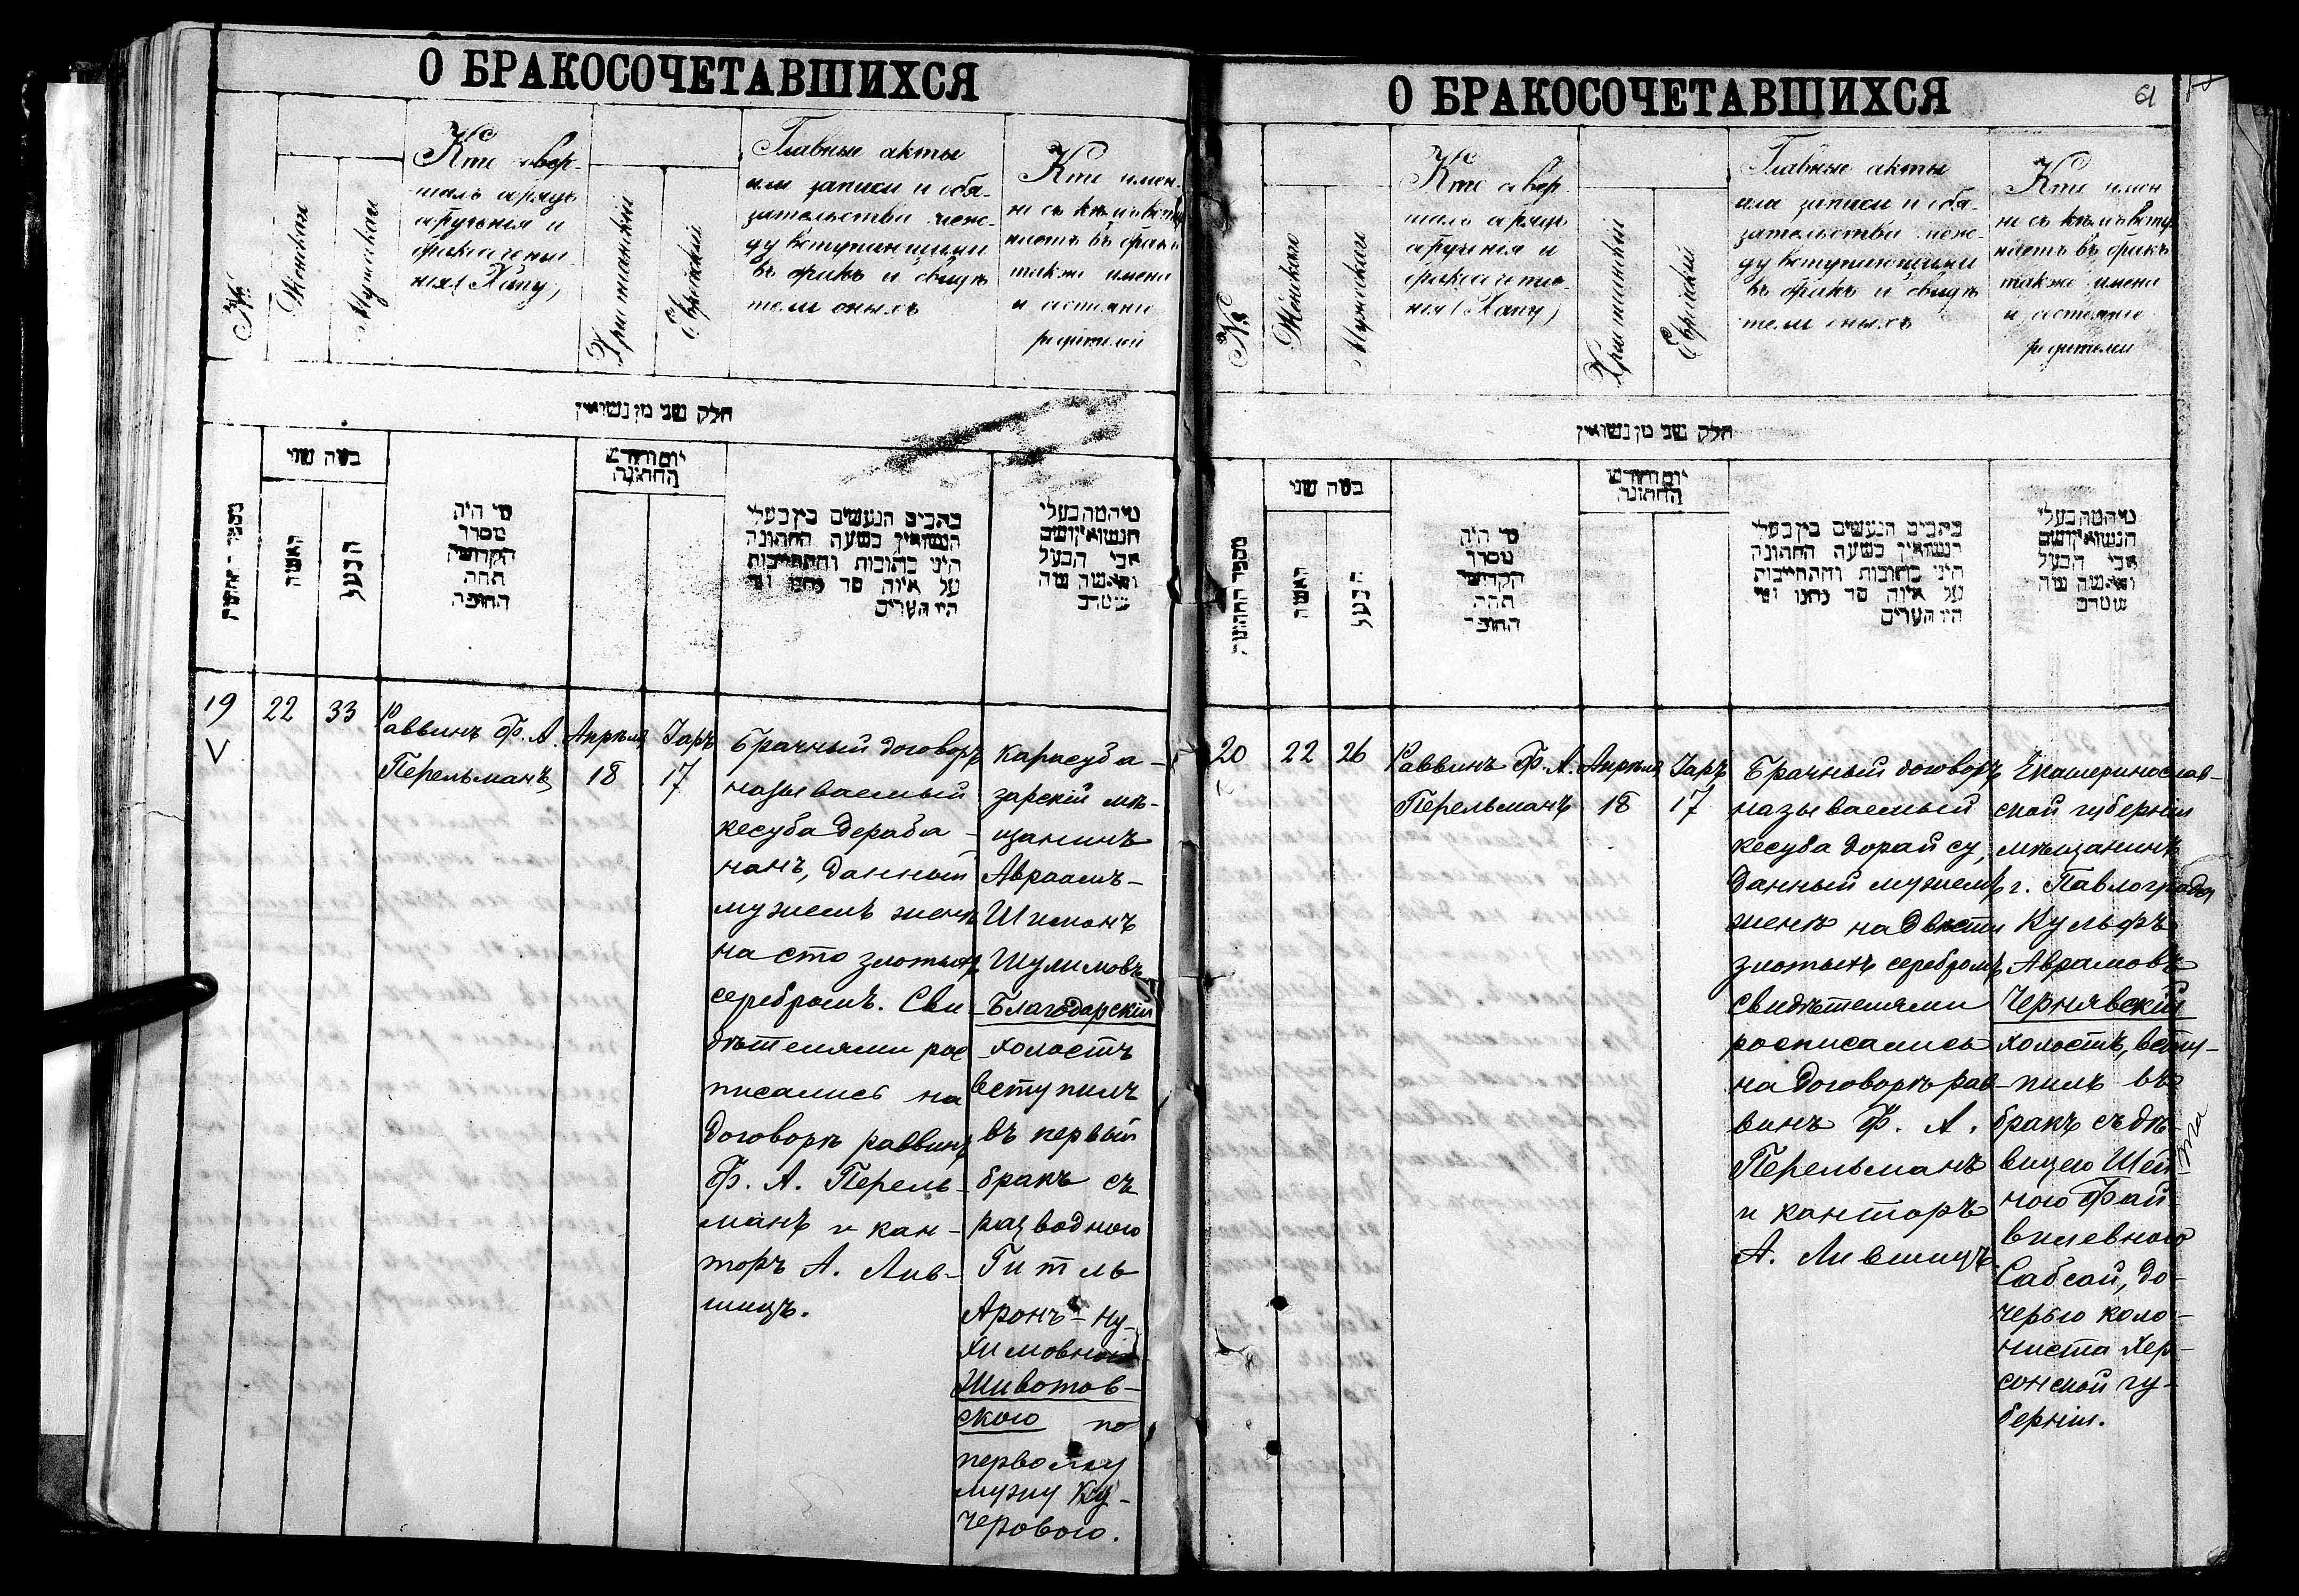 О БРАКОСОЧЕТАВШИХСЯ
№
Женскаго
Мужескаго
Кто совер-
шалъ обрядъ
обрученія и
бракосочета-
нія (Хапу)
Христіанскій
Еврейскій
Главные акты
или записи и обя-
зательства меж-
ду вступившими
въ бракъ и свидѣ
тели оныхъ
Кто имен-
но съ кѣмъ вступ
наетъ въ бракъ
также имена
и состояніе
родителей
חלק שני מן נשואין
מספר החתונה
כמה שני
האשה
הבעל
מי היה
מסדר
הקדושין
תחת
החופה
יום וחודש
החתונה
כתבים הנעשים בין בעלי
הנשואין בשעה החתונה
היינו כתובות והתחייבות
על איזה סך נתנו ומי
היו העדים
מי המה בעלי
הנשואין ושם
אבי הבעל
והאשה עם
19
22
33
Раввинъ Ф. А.
Перельманъ
Апрѣля
18
Іаръ
17
Брачный договоръ
называемый
кесуба дераба-
нанъ, данный
мужемъ женѣ
на сто злотыхъ
серебромъ. Сви-
дѣтелями рос
писались на
договорѣ раввинъ
Ф. А. Перель-
манъ и кан-
торъ А. Лив-
шицъ.
Карасуба-
зарскій мѣ-
щанинъ
Авраамъ-
Шимонъ
Шулимовъ
Благодарскій
холостъ
вступилъ
въ первый
бракъ съ
разводного
Гитль
Аронъ-Ну-
химовной
Животов-
ского по
первому
мужу Ку-
черового.
О БРАКОСОЧЕТАВШИХСЯ
61
№
Женскаго
Мужескаго
Кто совер-
шалъ обрядъ
обрученія и
бракосочета-
нія (Хапу)
Христіанскій
Еврейскій
Главные акты
или записи и обя-
зательства меж-
ду вступающими
въ бракъ и свидѣ
тели оныхъ
Кто имен
но съ кѣмъ вступ
наетъ въ бракъ
также имена
и состояніе
родителей
חלק שני מן נשואין
מספר החתונה
כמה שני
האשה
הבעל
מי היה
מסדר
הקדושין
תחת
החופה
יום וחודש
החתונה
כתבים הנעשים בין בעלי
הנשואין בשעה החתונה
היינו כתובות והתחייבות
על איזה סך נתנו ומי
היו העדים
מי המה בעלי
הנשואין ושם
אבי הבעל
והאשה עם
20
22
26
Раввинъ Ф. А.
Перельманъ
Апрѣля
18
Іаръ
17
Брачный договоръ
называемый
кесуба дорайсу,
данный мужемъ
женѣ на двѣсти
злотыхъ серебромъ
свидѣтелями
росписались
на договорѣ рав-
винъ Ф. А.
Перельманъ
и канторъ
А. Лившицъ
Екатеринослав-
ской губерніи
мѣщанинъ
г. Павлограда
Кульфъ
Аврамовъ
Чернявскій
холостъ, всту-
пилъ въ
бракъ съ дѣ-
вицею Шей-
ною Фай-
вилевною
Сабсай, до-
черью коло-
ниста Хер-
сонской гу-
берніи.